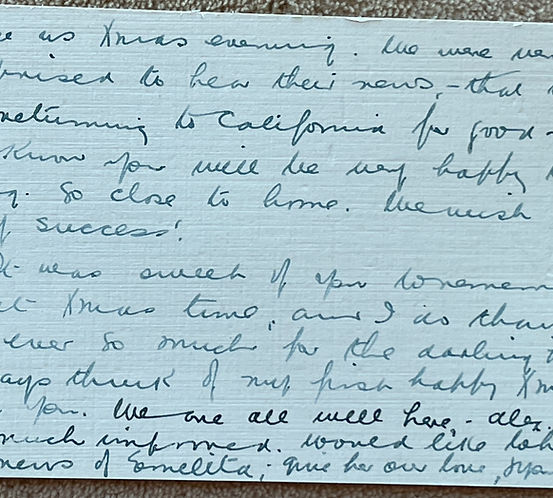 us Xmas evening. We were ver
prised to hear their news, - that
returning to California for good -
Know you will be very happy
g. So close to home. We wish
of success!
It was sweet of you to remem
at Xmas time, and I do than
ever so much for the darling
ays think of my first happy Xm
you. We are all well here, - Alex,
much improved. Would like to h
news of Esmelita, - give her our love,